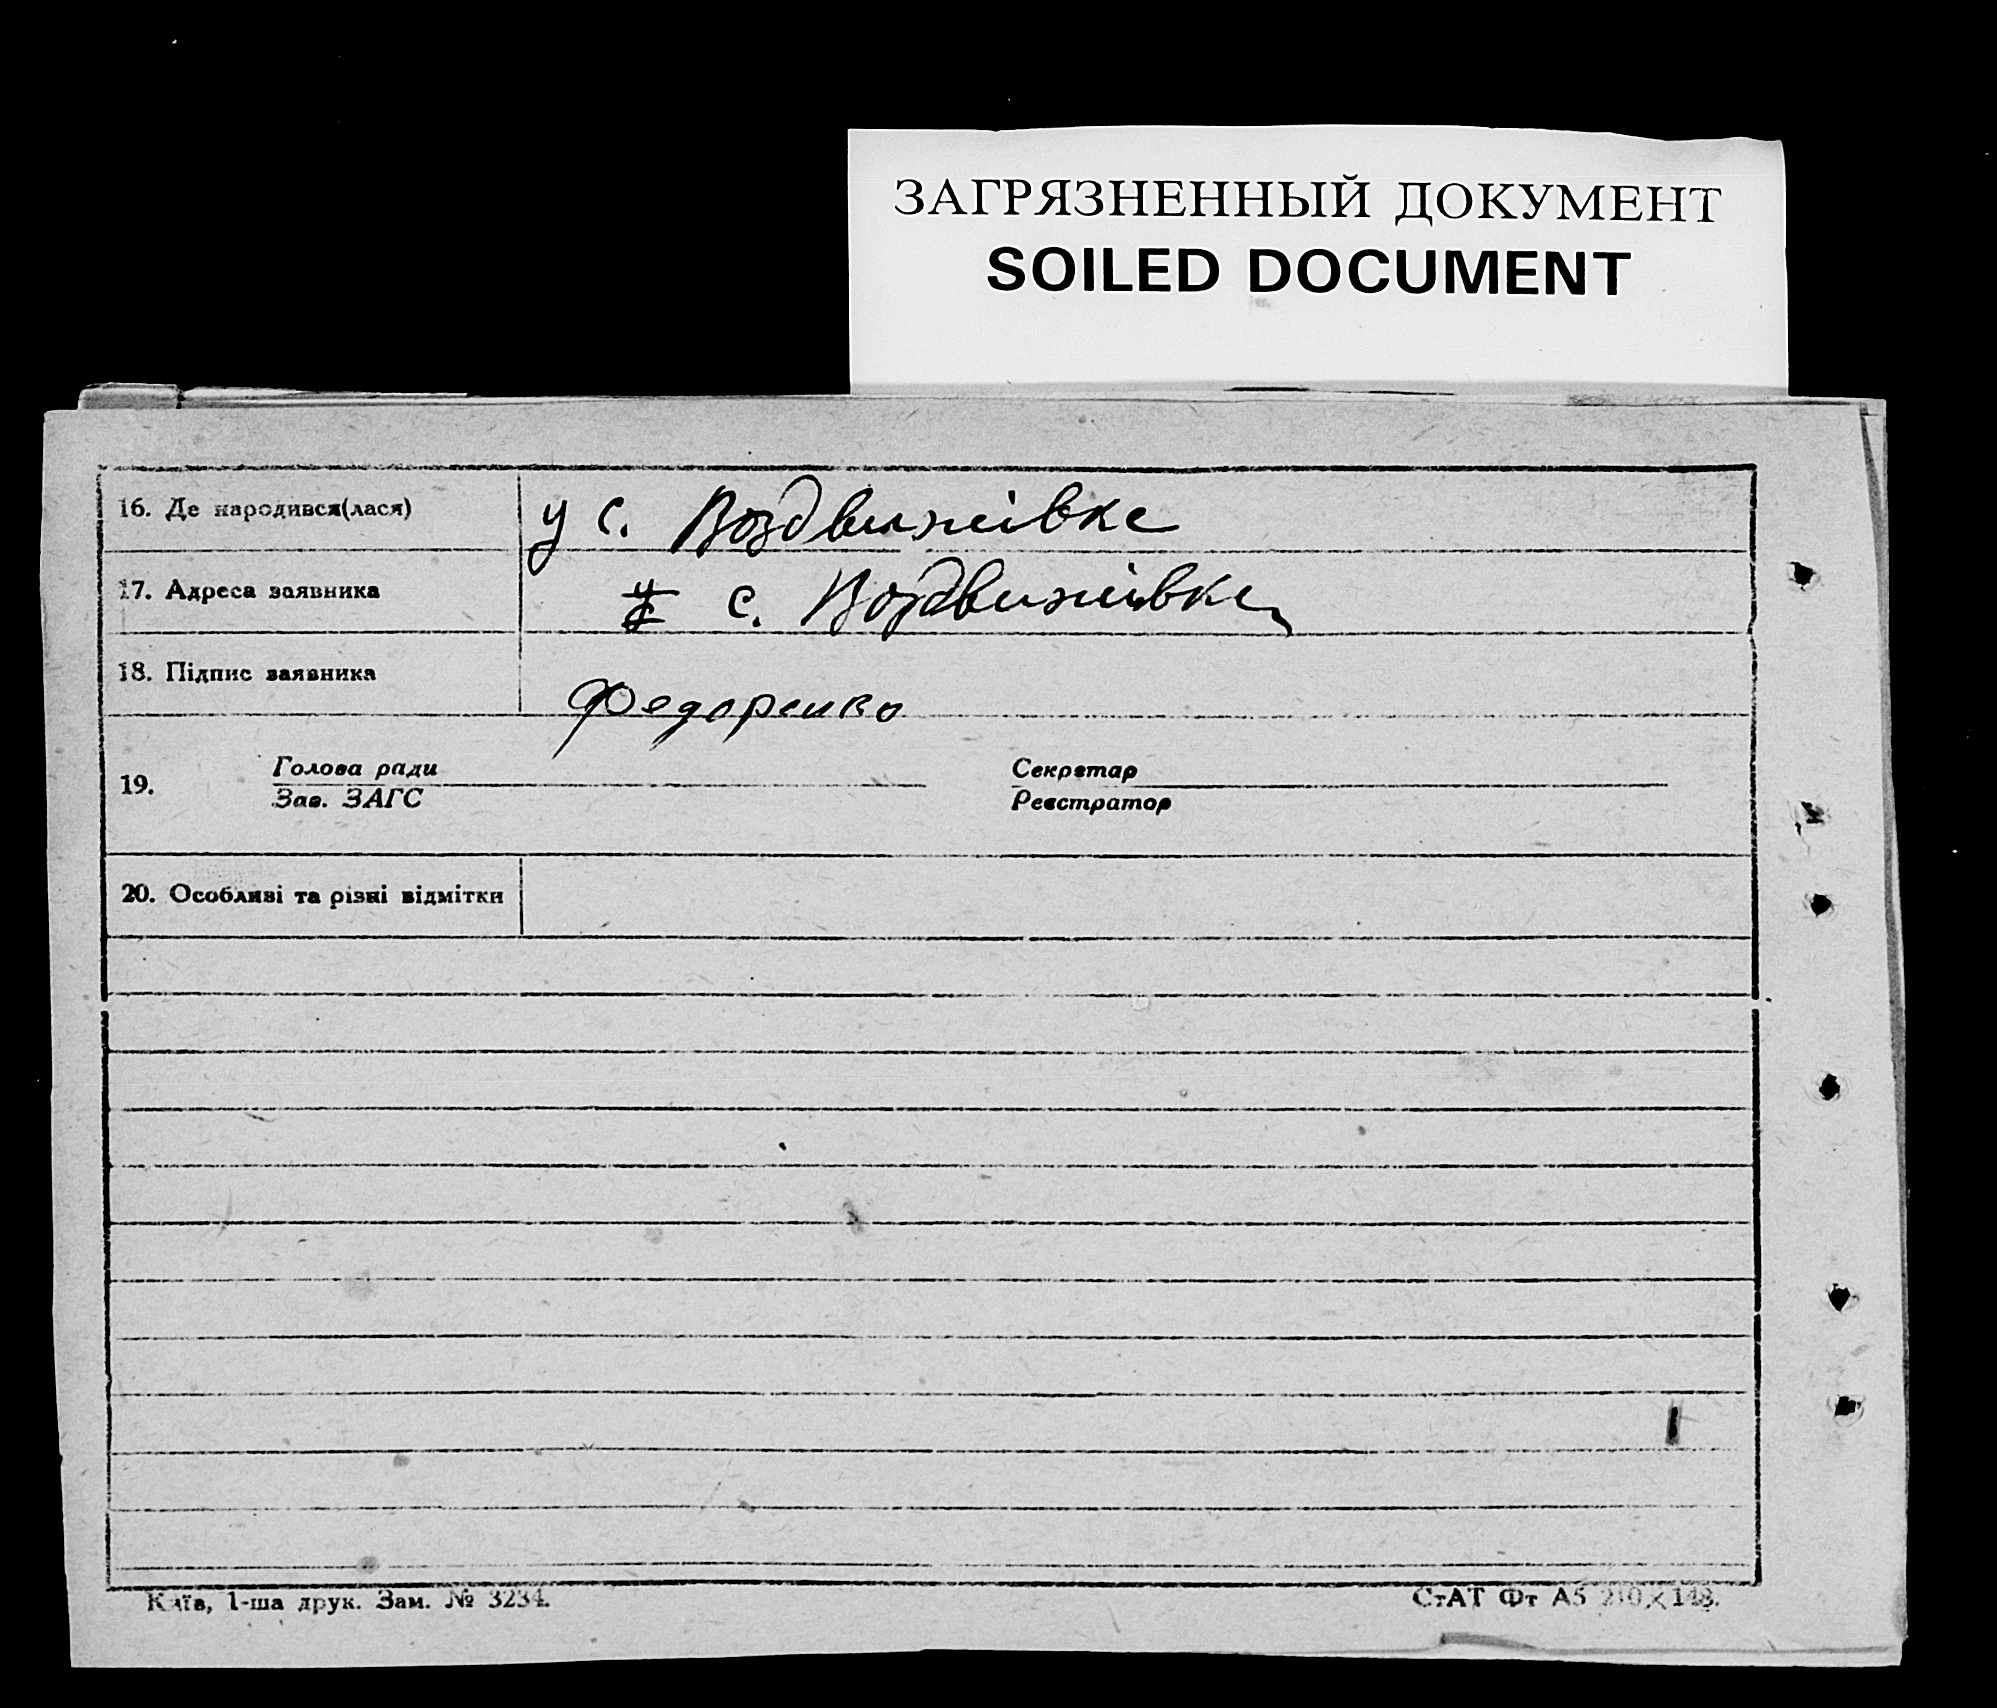 ЗАГРЯЗНЕННЫЙ ДОКУМЕНТ
SOILED DOCUMENT
16. Де народився(лася) у с. Воздвижівке
17. Адреса заявника с. Воздвижівке
18. Підпис заявника Федоренко
19. Голова ради Секретар
Зав. ЗАГС Реєстратор
20. Особливі та різні відмітки
Київ, 1-ша друк. Зам. № 3234. СтАТ Фт А5 210×148.